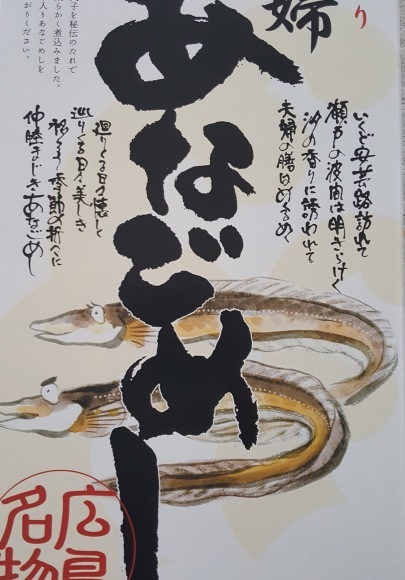 り
婦
あなごめし
いくど安芸路訪れて
瀬戸の波間は明きらけく
汐の香りに誘われて
夫婦の膳は
廻りくる日々懐しく
巡りくる日々美しき
季節の折々に
仲睦まじきあなごめし
子を秘伝のたれで
らかく煮込みました。
入りあなごめしを
がりください。
広島
名物